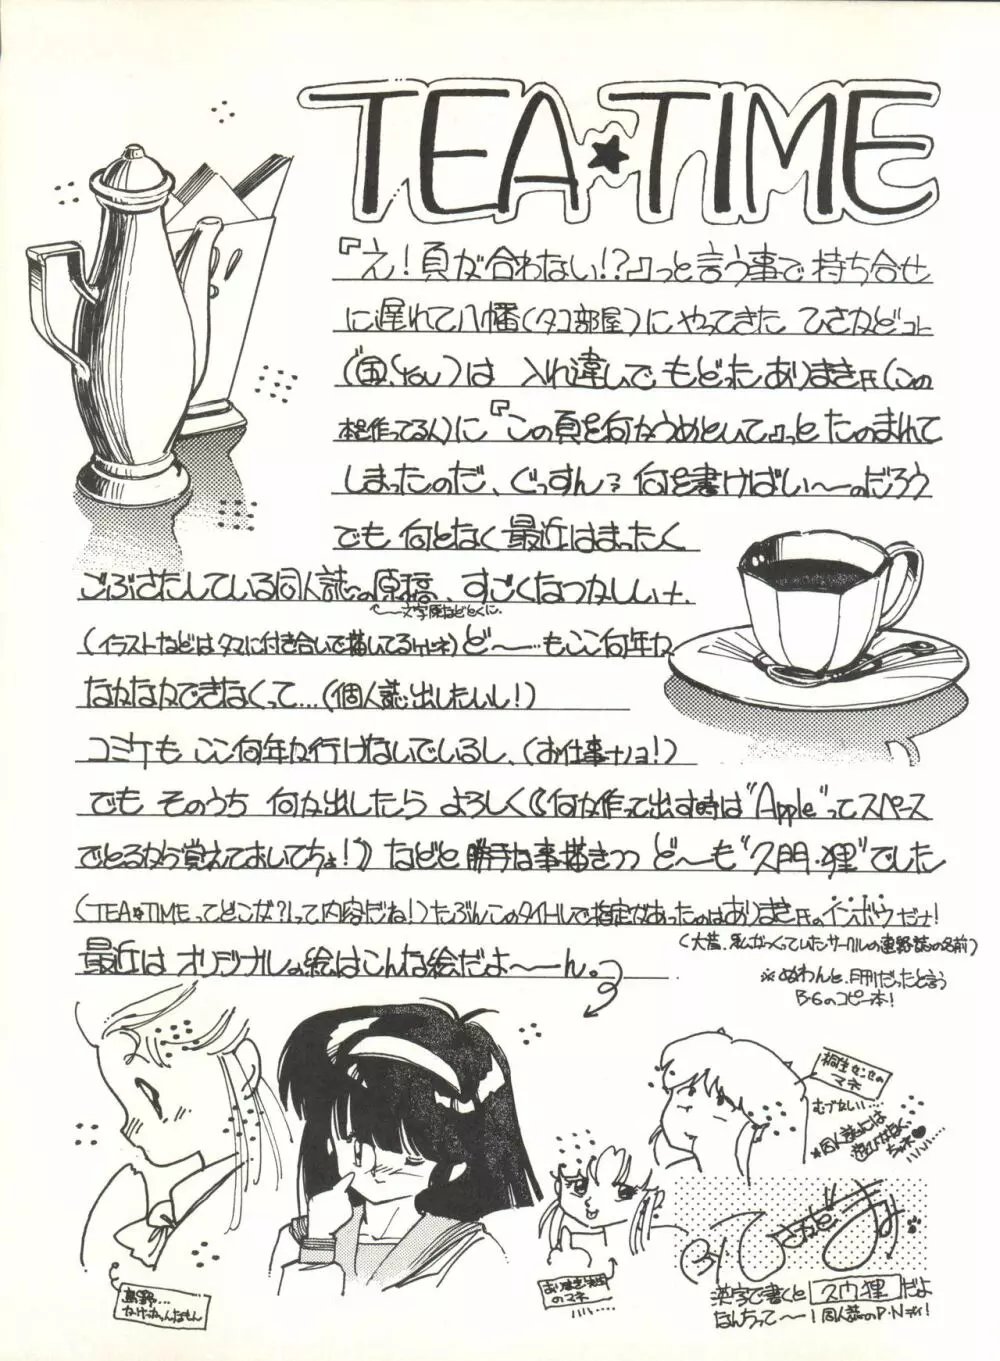 TEA★TIME
『え!頁が合わない!?』っと言う事で 持ち合せ
に遅れて八幡(タコ部屋)にやってきた ひさかどコト
は 入れ違いで もどった ありまき氏(この
本を作ってる人)に『この頁を何かうめといて』っと たのまれて
しまったのだ、ぐっすん? 何を書けばい〜のだろう
でも 何となく 最近はまったく
ごぶさたしている同人誌の原稿、すごくなつかしい
(イラストなどはタマに付き合いで描いてるケドネ) ど〜…もここ何年か
なかなかできなくって…(個人誌出したいし!)
コミケも ここ何年か行けないでいるし、(お仕事ナノヨ!)
でも そのうち 何か出したら よろしく《何か作って出す時は"Apple"ってスペース
でとるから覚えておいてちょ!》などと 勝手な事描きつつ ど〜も"久門・狸"でした
(TEA★TIMEってどこが?って内容だね!)たぶんこのタイトルで指定があったのはありまき氏のインボウだナ!
(大昔、私がつくっていたサークルの連絡誌の名前)
※ぬわんと、月刊だったと言う
B・6のコピー本!
最近は オリジナルの絵はこんな絵だよ〜〜ん。
桐生せんせのマネ
むづかしい…
のマネ
漢字で書くと 久門狸 だよ
なんちって〜! 同人誌のP・Nデイ!